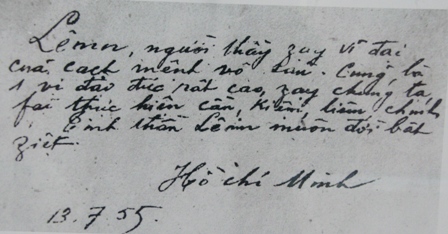 Lênin, người thầy zạy vĩ đại
của cách mệnh vô sản. Cũng là
1 vị đạo đức rất cao, zạy chúng ta
fải thực hiện cần, kiệm, liêm chính
Tinh thần Lênin muôn đời bất
ziệt.
Hồ Chí Minh
13.7.55.